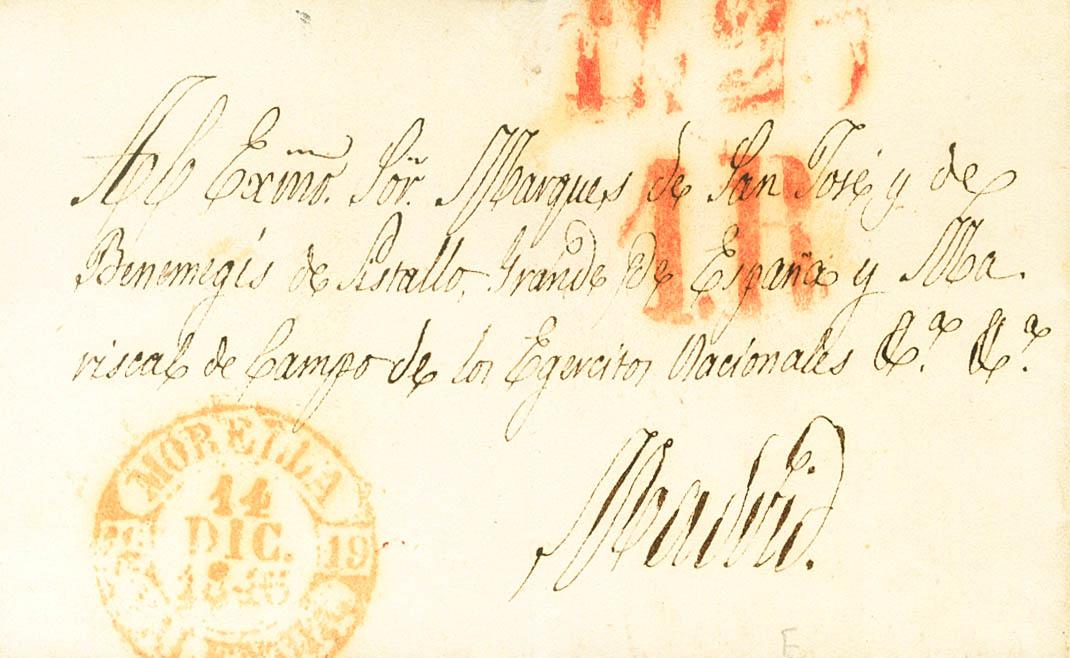 1R
Al Exmo. Sor. Marques de San José y de
Benemegís de Sistallo, Grande de España y Ma.
riscal de Campo de los Egercitos Nacionales &.ª &.ª
Madrid.
MORELLA
14
DIC.
19
E